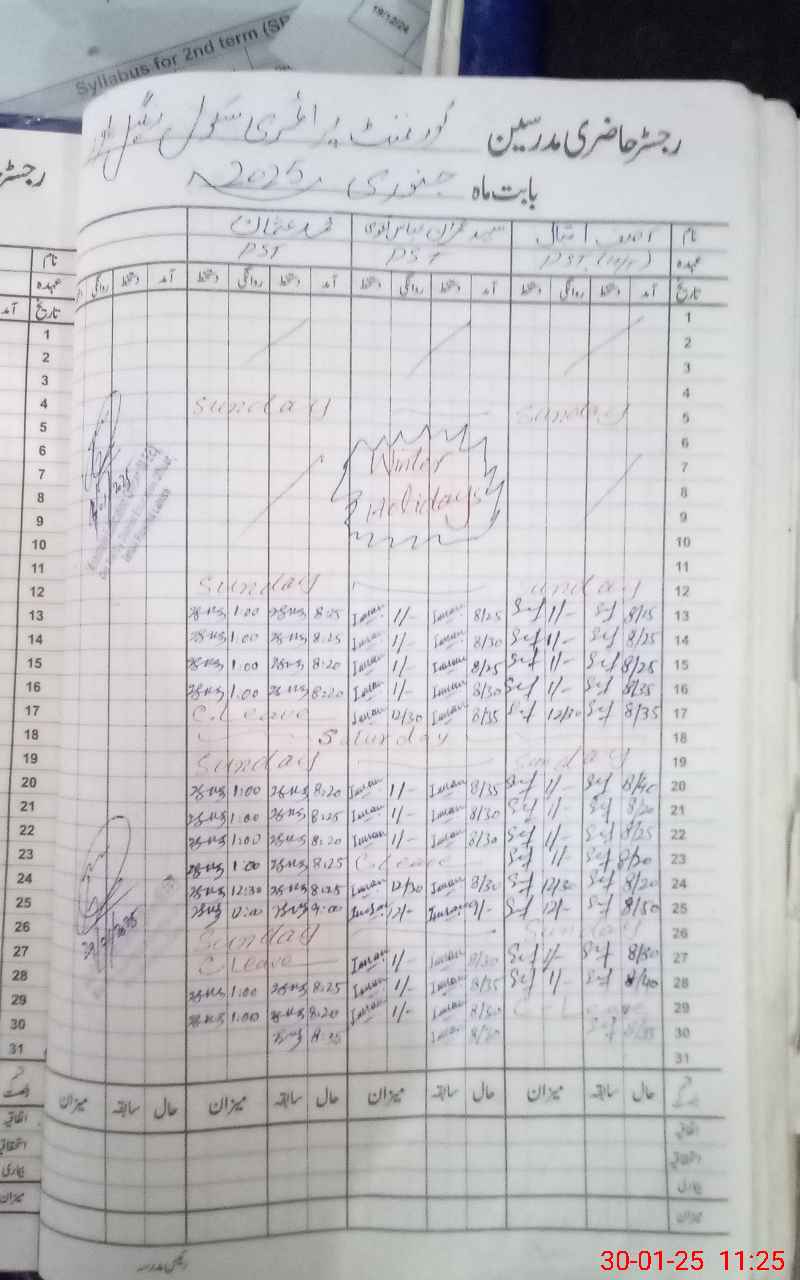 19/12/24
Syllabus for 2nd term (SP
رجسٹر حاضری مدرسین گورنمنٹ پرائمری سکول
بابت ماہ جنوری 2025
نام محمد عثمان
عہدہ PST (H/T) PST PST
تاریخ آمد دستخط روانگی دستخط آمد دستخط روانگی دستخط آمد دستخط روانگی دستخط آمد دستخط روانگی
1
2
3
4
5 Sunday Sunday
6
7 Winter
8 Holidays
9
10
11
12 Sunday unday
13 8/25 Saf 1/- Saf 8/25 Imran 1/- Imran 8:25 1:00
14 8/25 Saf 1/- Saf 8/30 Imran 1/- Imran 8:25 1:00
15 8/25 Saf 1/- Saf 8/25 Imran 1/- Imran 8:20 1:00
16 8/35 Saf 1/- Saf 8/30 Imran 1/- Imran 8:20 1:00
17 8/35 Saf 12/30 Saf 8/35 Imran 12/30 Imran C.Leave
18 Saturday
19 Sunday Sunday
20 8/40 Saf 1/- Saf 8/35 Imran 1/- Imran 8:20 1:00
21 8/20 Saf 1/- Saf 8/30 Imran 1/- Imran 8:25 1:00
22 8/25 Saf 1/- Saf 8/30 Imran 1/- Imran 8:20 1:00
23 8/30 Saf 1/- Saf C.Leave 8:25 1:00
24 8/20 Saf 12/30 Saf 8/30 Imran 12/30 Imran 8:25 12:30
25 8/50 Saf 12/- Saf 9/- Imran 12/- Imran 9:00 12:00
26 Sunday Sunday
27 8/50 Saf 1/- Saf 8/30 Imran 1/- Imran C Leave
28 8/40 Saf 1/- Saf 8/35 Imran 1/- Imran 8:25 1:00
29 C-Leave 8/30 Imran 1/- Imran 8:20 1:00
30 8/35 Saf 8/30 Imran 8:25
31
حال سابقہ میزان حال سابقہ میزان حال سابقہ میزان حال سابقہ میزان
اتفاقیہ
استحقاقیہ
بیماری
میزان
رئیس مدرسہ
30-01-25 11:25